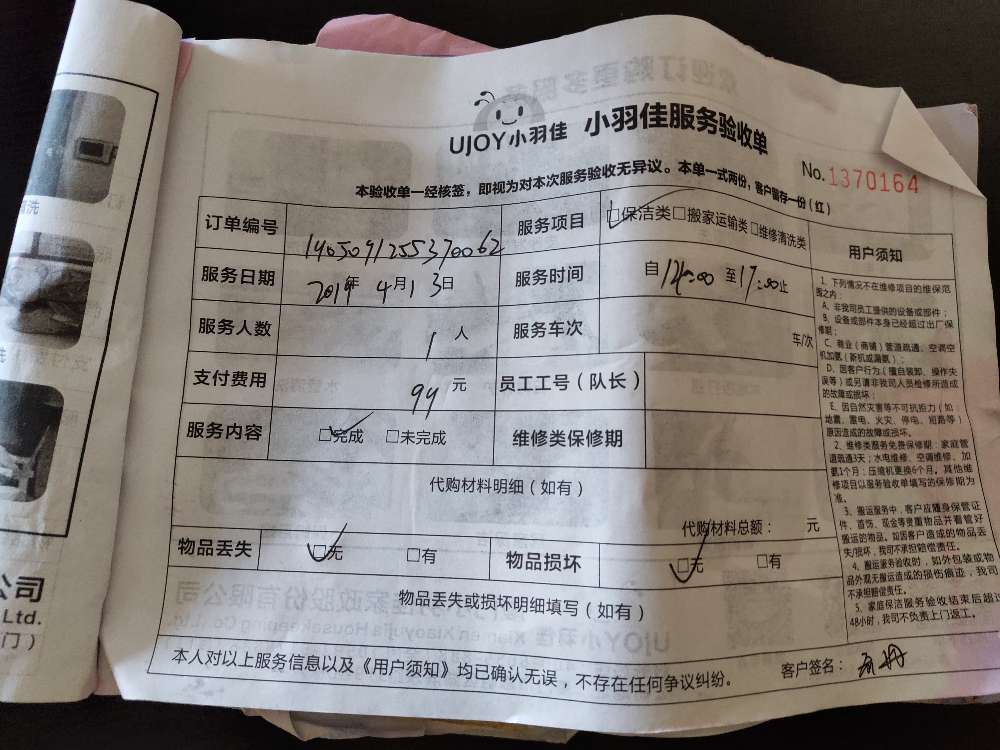 UJOY小羽佳 小羽佳服务验收单
No.1370164
本验收单一经核签，即视为对本次服务验收无异议。本单一式两份，客户留存一份（红）
订单编号 1905091255370062 服务项目 □保洁类□搬家运输类□维修清洗类
服务日期 2019年4月13日 服务时间 自 至17:00止
服务人数 1人 服务车次 车/次
支付费用 99元 员工工号（队长）
服务内容 □完成 □未完成 维修类保修期
代购材料明细（如有）
代购材料总额： 元
物品丢失 □无 □有 物品损坏 □无 □有
物品丢失或损坏明细填写（如有）
本人对以上服务信息以及《用户须知》均已确认无误，不存在任何争议纠纷。 客户签名：
用户须知
1、下列情况不在维修项目的维保范
围之内：
A、非我司员工提供的设备或部件；
B、设备或部件本身已经超过出厂保
修期；
C、商业（商铺）管道疏通、空调空
机加氨（新机或漏氨）；
D、因客户行为（擅自装卸、操作失
误等）或另请非我司人员检修所造成
的故障或损坏；
E、因自然灾害等不可抗拒力（如：
地震、雷电、火灾、停电、短路等）
原因造成的故障或损坏。
2、维修类服务免费保修期：家庭管
道疏通3天；水电维修、空调维修、加
氨1个月；压缩机更换6个月。其他维
修项目以服务验收单填写的保修期为
准。
3、搬运服务中，客户应随身保管证
件、首饰、现金等贵重物品并看管好
搬运的物品。如因客户造成的物品丢
失/损坏，我司不承担赔偿责任。
4、搬运服务验收时，如外包装或物
品外观无搬运造成的损伤痕迹，我司
不承担赔偿责任。
5、家庭保洁服务验收结束后超过
48小时，我司不负责上门返工。
清洗
公司
Ltd.
门）